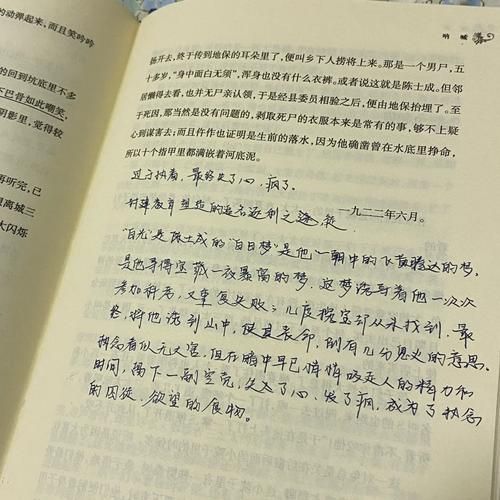 的动弹起来，而且笑吟吟
的回到坑底里不念
下巴骨如此嘲笑，
阴影里，觉得较
再听完，已
里离城三
大闪烁
呐喊
扬开去，终于传到地保的耳朵里了，便叫乡下人捞将上来。那是一个男尸，五
十多岁，“身中面白无须”，浑身也没有什么衣裤。或者说这就是陈士成。但邻
居懒得去看，也并无尸亲认领，于是经县委员相验之后，便由地保抬埋了。至
于死因，那当然是没有问题的，剥取死尸的衣服本来是常有的事，够不上疑
心到谋害去；而且仵作也证明是生前的落水，因为他确凿曾在水底里挣命，
所以十个指甲里都满嵌着河底泥。
过于执着，最终失了心，疯了。
一九二二年六月。
封建教育塑造的追名逐利之迷
“白光”是陈士成的“白日梦”是他一朝中的飞黄腾达的梦，
是他寻得宝藏一夜暴富的梦。这梦诱导着他一次次
参加科考，又重复失败；几度挖宝却从未找到，最
终，将他诱到山中，使其丧命，倒有几分见义的意思。
执念看似无大害，但在暗中早已悄悄吸走人的精力和
时间，留下一副空壳，失去了心，发了疯，成为了执念
的囚徒，欲望的食物。